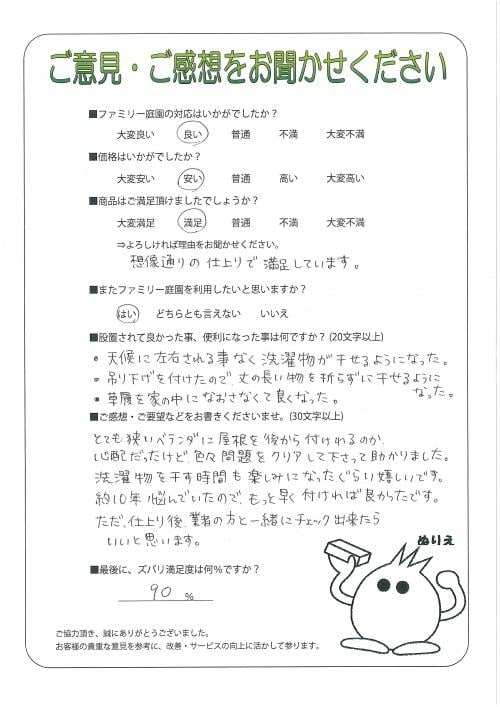 ご意見・ご感想をお聞かせください
■ファミリー庭園の対応はいかがでしたか？
大変良い 良い 普通 不満 大変不満
■価格はいかがでしたか？
大変安い 安い 普通 高い 大変高い
■商品はご満足頂けましたでしょうか？
大変満足 満足 普通 不満 大変不満
⇒よろしければ理由をお聞かせください。
想像通りの仕上りで満足しています。
■またファミリー庭園を利用したいと思いますか？
はい どちらとも言えない いいえ
■設置されて良かった事、便利になった事は何ですか？(20文字以上)
• 天候に左右される事なく洗濯物が干せるようになった。
• 吊り下げを付けたので、丈の長い物を折らずに干せるように
なった。
• 草履を家の中になおさなくて良くなった。
■ご感想・ご要望などをお書きくださいませ。(30文字以上)
とても狭いベランダに屋根を後から付けれるのか、
心配だったけど、色々問題をクリアして下さって助かりました。
洗濯物を干す時間も楽しみになったぐらい嬉しいです。
約10年悩んでいたので、もっと早く付ければ良かったです。
ただ、仕上り後、業者の方と一緒にチェック出来たら
いいと思います。
ぬりえ
■最後に、ズバリ満足度は何％ですか？
90 %
ご協力頂き、誠にありがとうございました。
お客様の貴重な意見を参考に、改善・サービスの向上に活かして参ります。